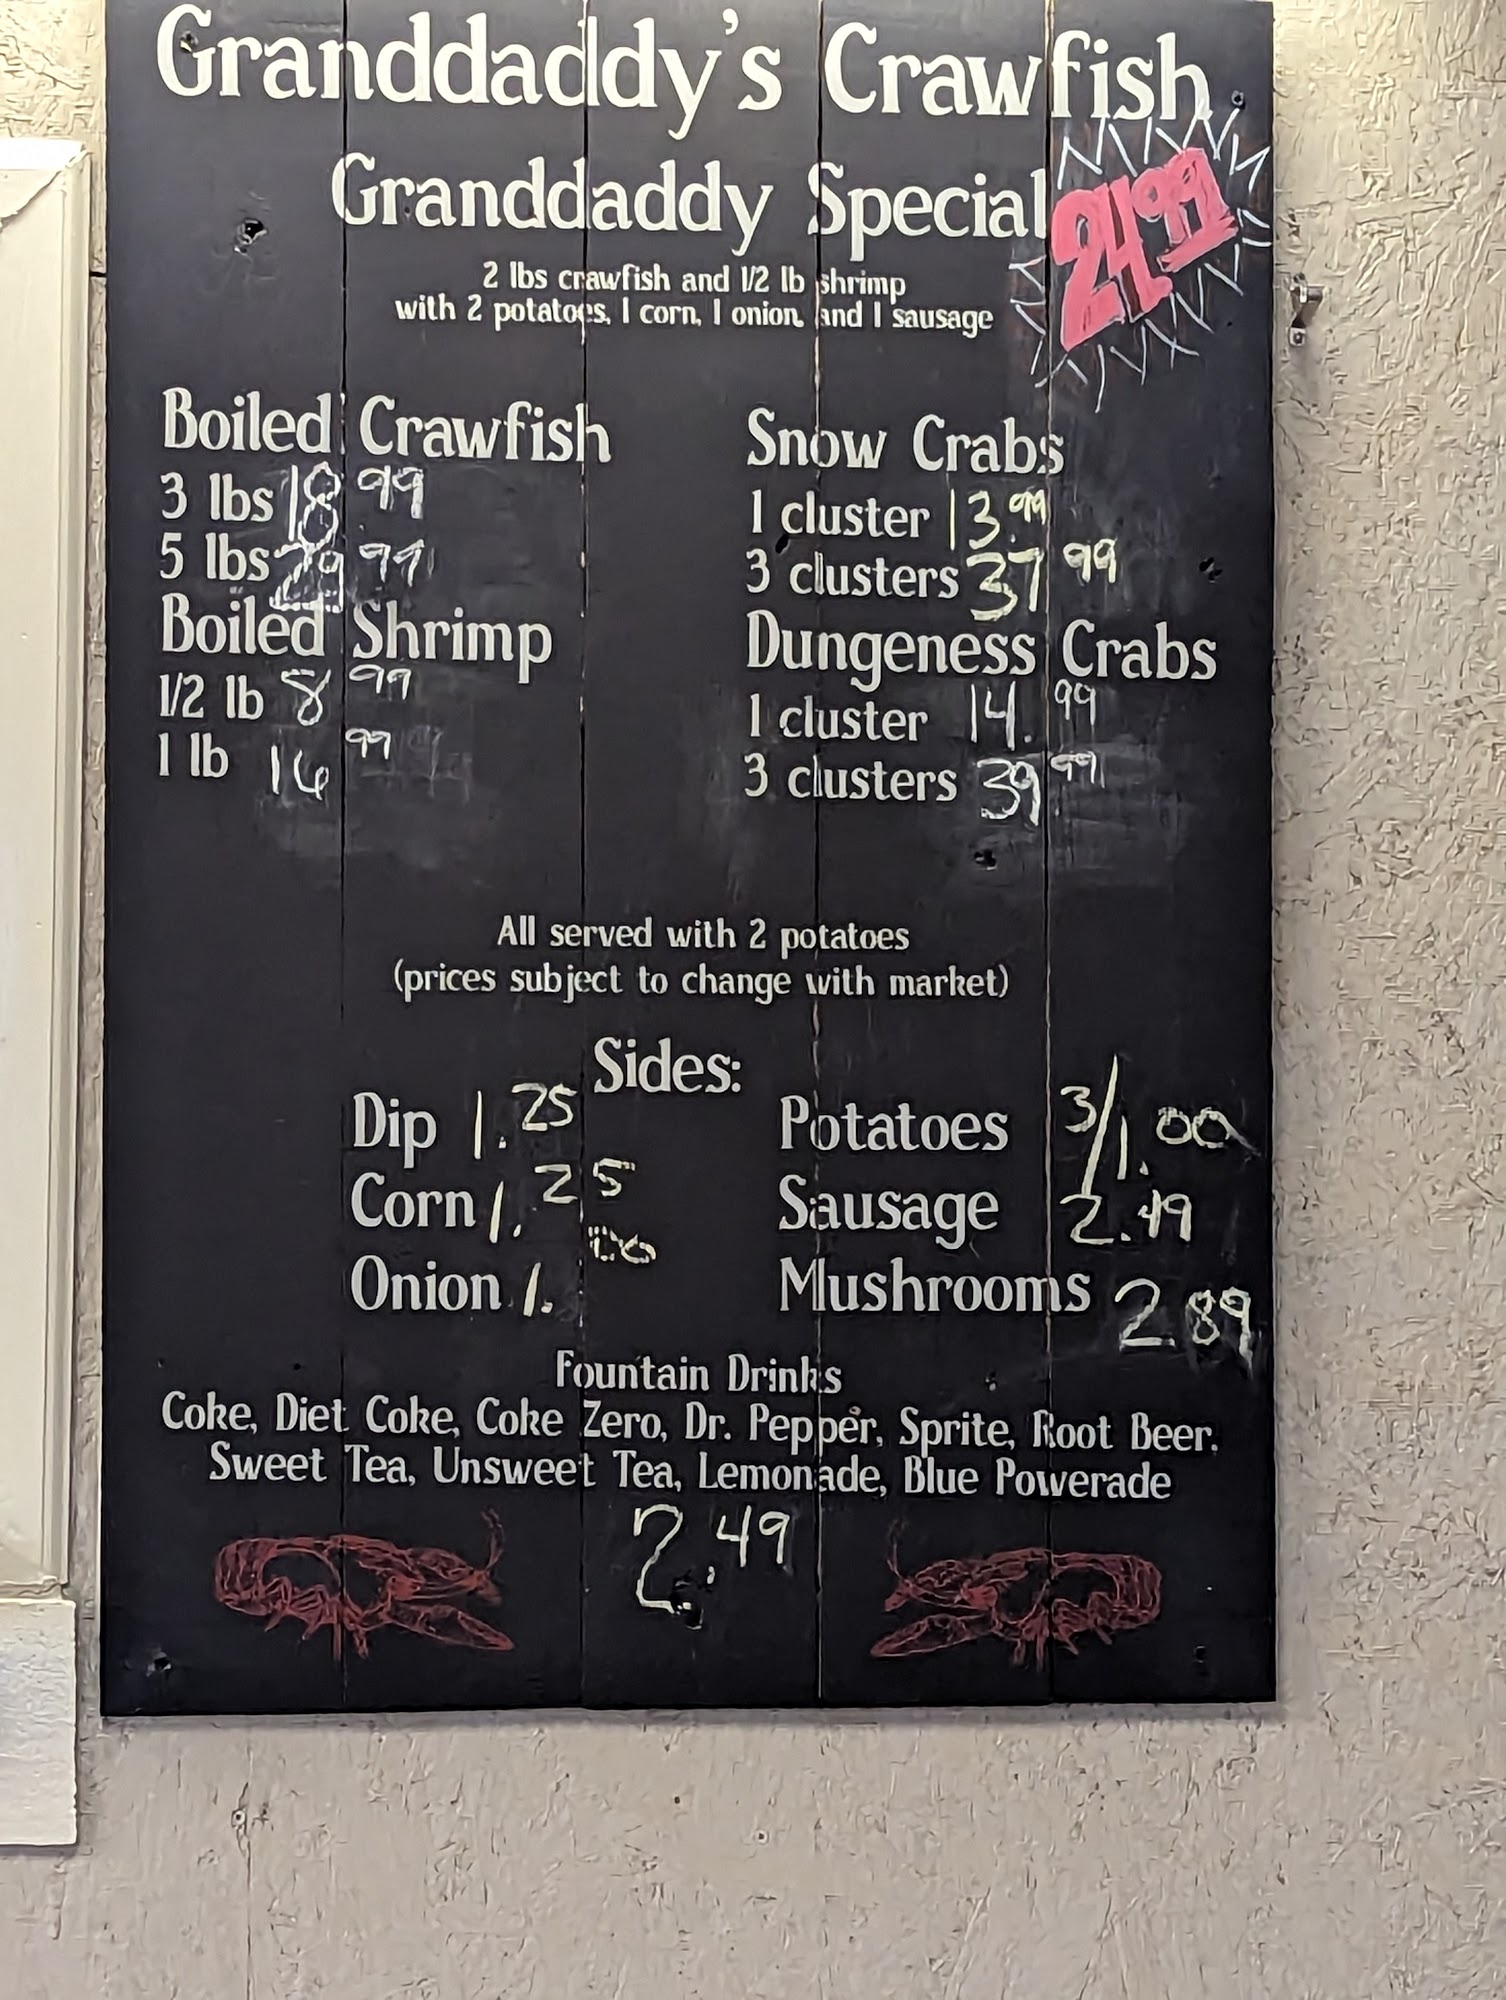 Granddaddy's Crawfish
Granddaddy Special 24.99
2 lbs crawfish and 1/2 lb shrimp
with 2 potatoes, 1 corn, 1 onion, and 1 sausage
Boiled Crawfish
3 lbs 18 99
5 lbs 29 99
Boiled Shrimp
1/2 lb 8 99
1 lb 16 99
Snow Crabs
1 cluster 13.99
3 clusters 37 99
Dungeness Crabs
1 cluster 14.99
3 clusters 39 99
All served with 2 potatoes
(prices subject to change with market)
Sides:
Dip 1.25
Corn 1.25
Onion 1.00
Potatoes 3/1.00
Sausage 2.49
Mushrooms 2.89
Fountain Drinks
Coke, Diet Coke, Coke Zero, Dr. Pepper, Sprite, Root Beer,
Sweet Tea, Unsweet Tea, Lemonade, Blue Powerade
2.49